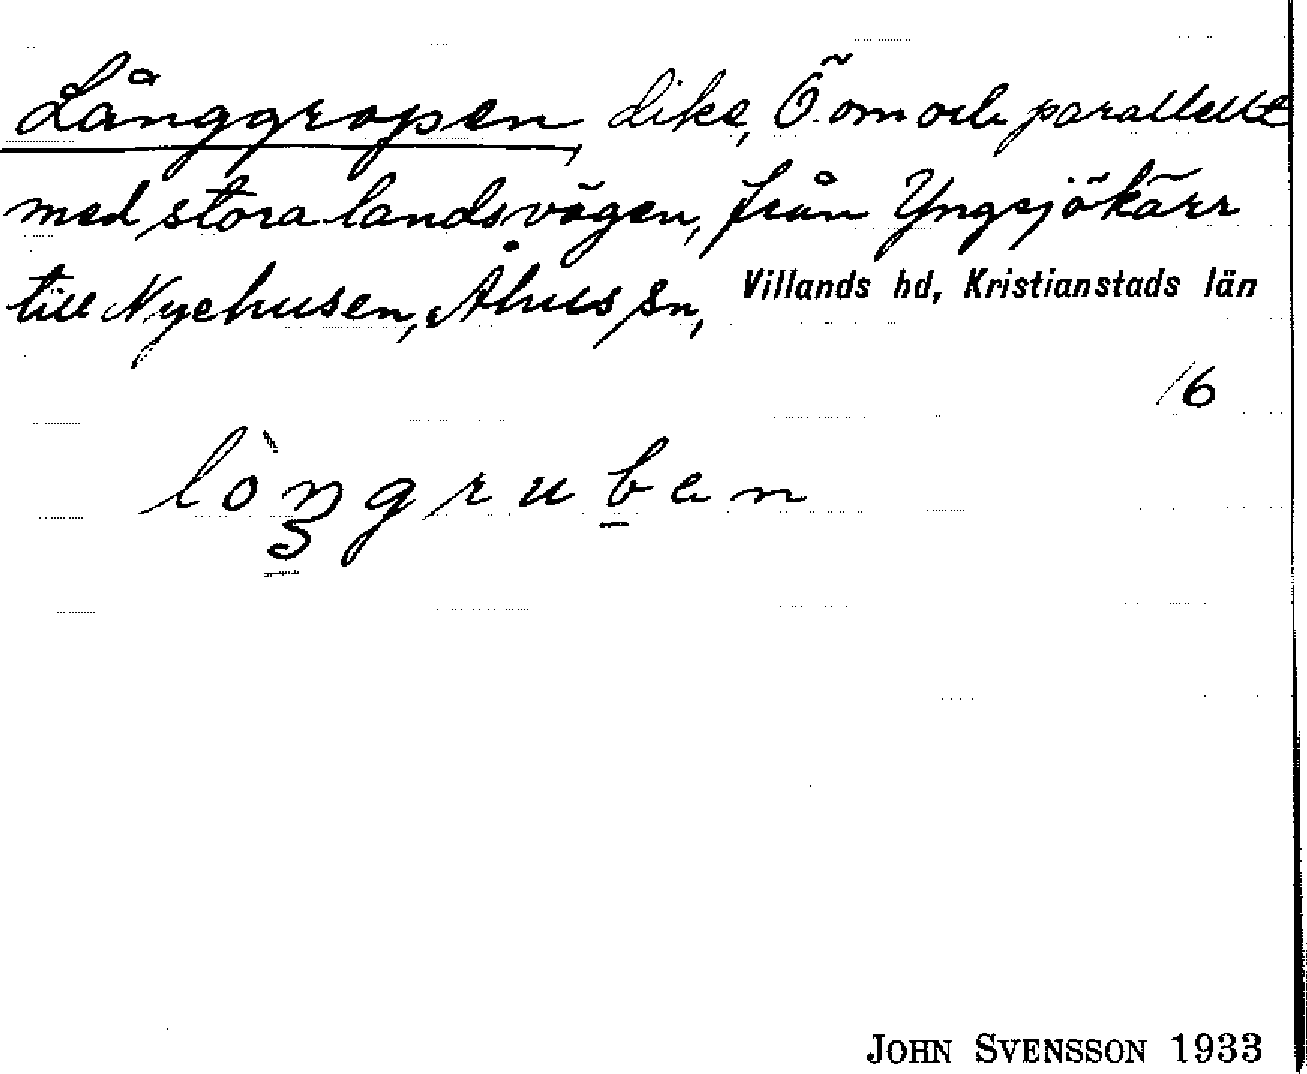 Långgropen, dike, Ö. om och parallellt
med stora landsvägen, från Yngsjökärr
till Nyehusen, Åhus sn, Villands hd, Kristianstads län
16
lòŋgruben
JOHN SVENSSON 1933